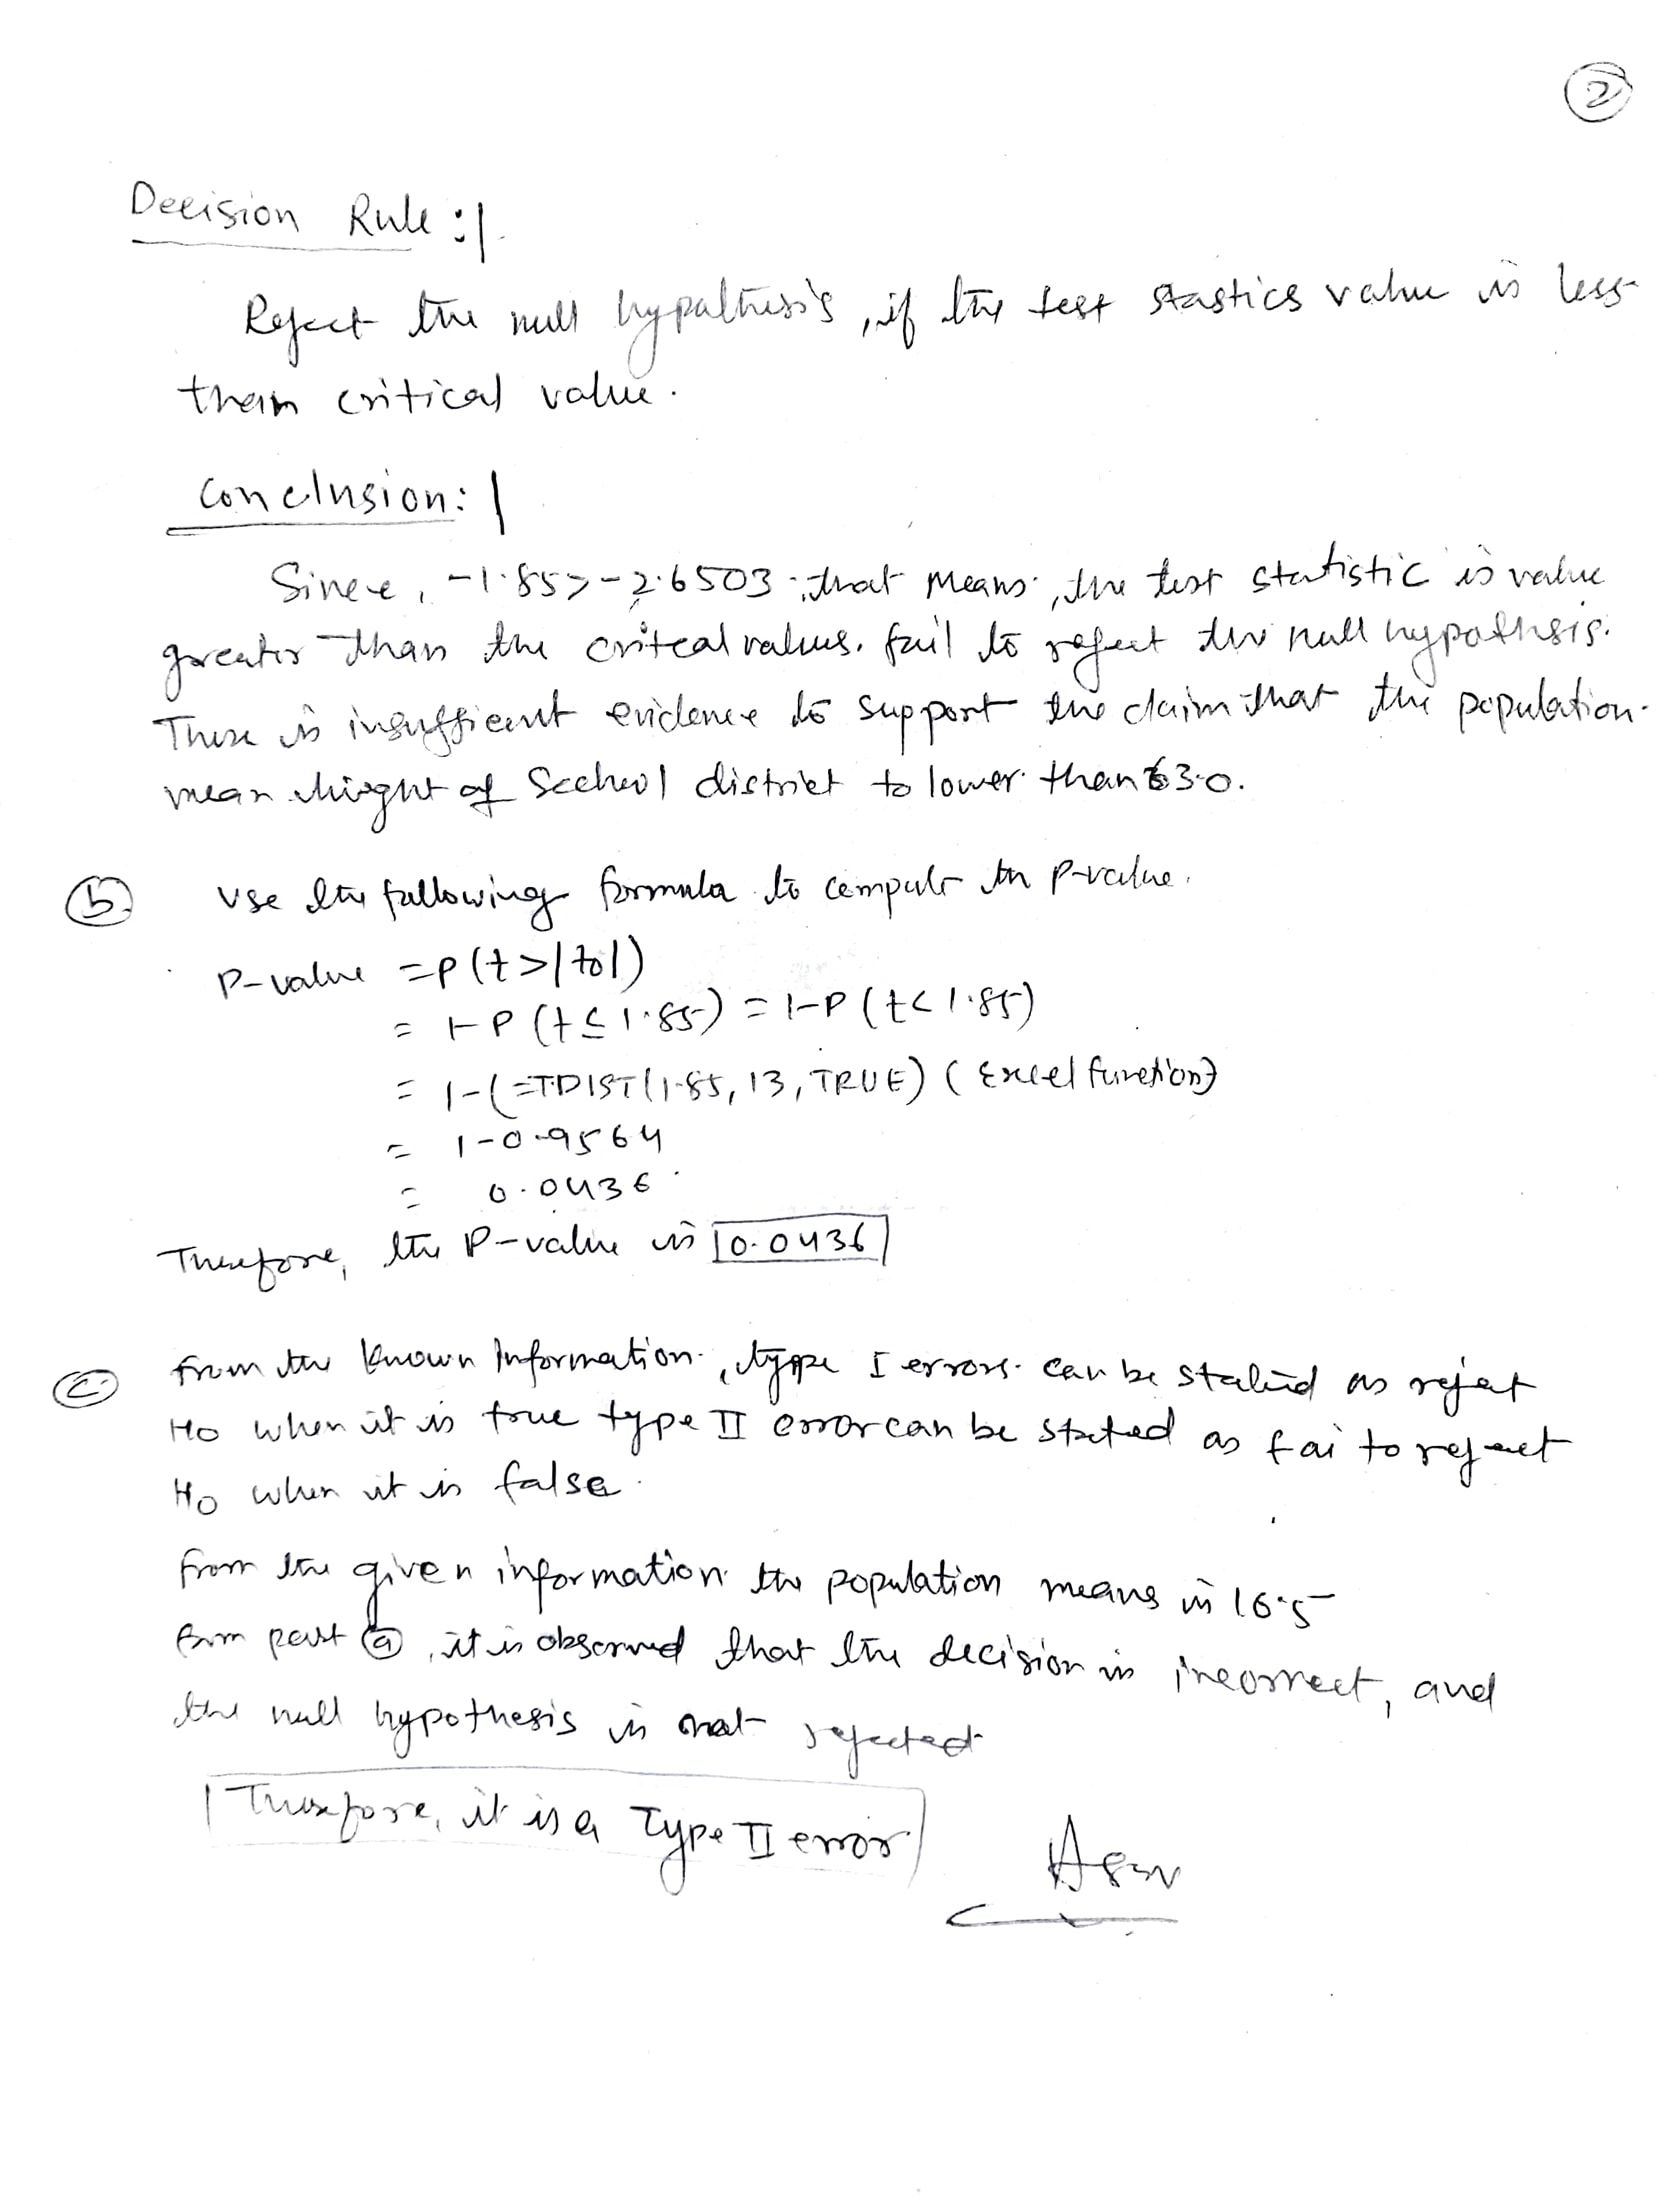 2
Decision Rule :|
Reject the null hypothesis, if the test stastics value is less
than critical value.
Conclusion: |
Since, -1.85 > -2.6503 that means, the test statistic is value
greater than the critcal values. fail to reject the null hypothesis.
There is insufficient evidence to support the claim that the population
mean hieght of Scchool district to lower than 63.0.
(b) Use the following formula to compute the P-value.
P-value = P(t>|to|)
= 1-P(t≤1.85) = 1-P(t<1.85)
= 1-(=TDIST(1.85, 13, TRUE) (Excel function)
= 1-0.9564
= 0.0436
Therefore, the P-value is 0.0436
(c) From the known Information, type I errors can be stated as reject
Ho when it is true type II error can be stated as fai to reject
Ho when it is false.
from the given information the population means is 16.5
from part (a), it is observed that the decision is incorrect, and
the null hypothesis is not rejected
Therefore, it is a Type II error